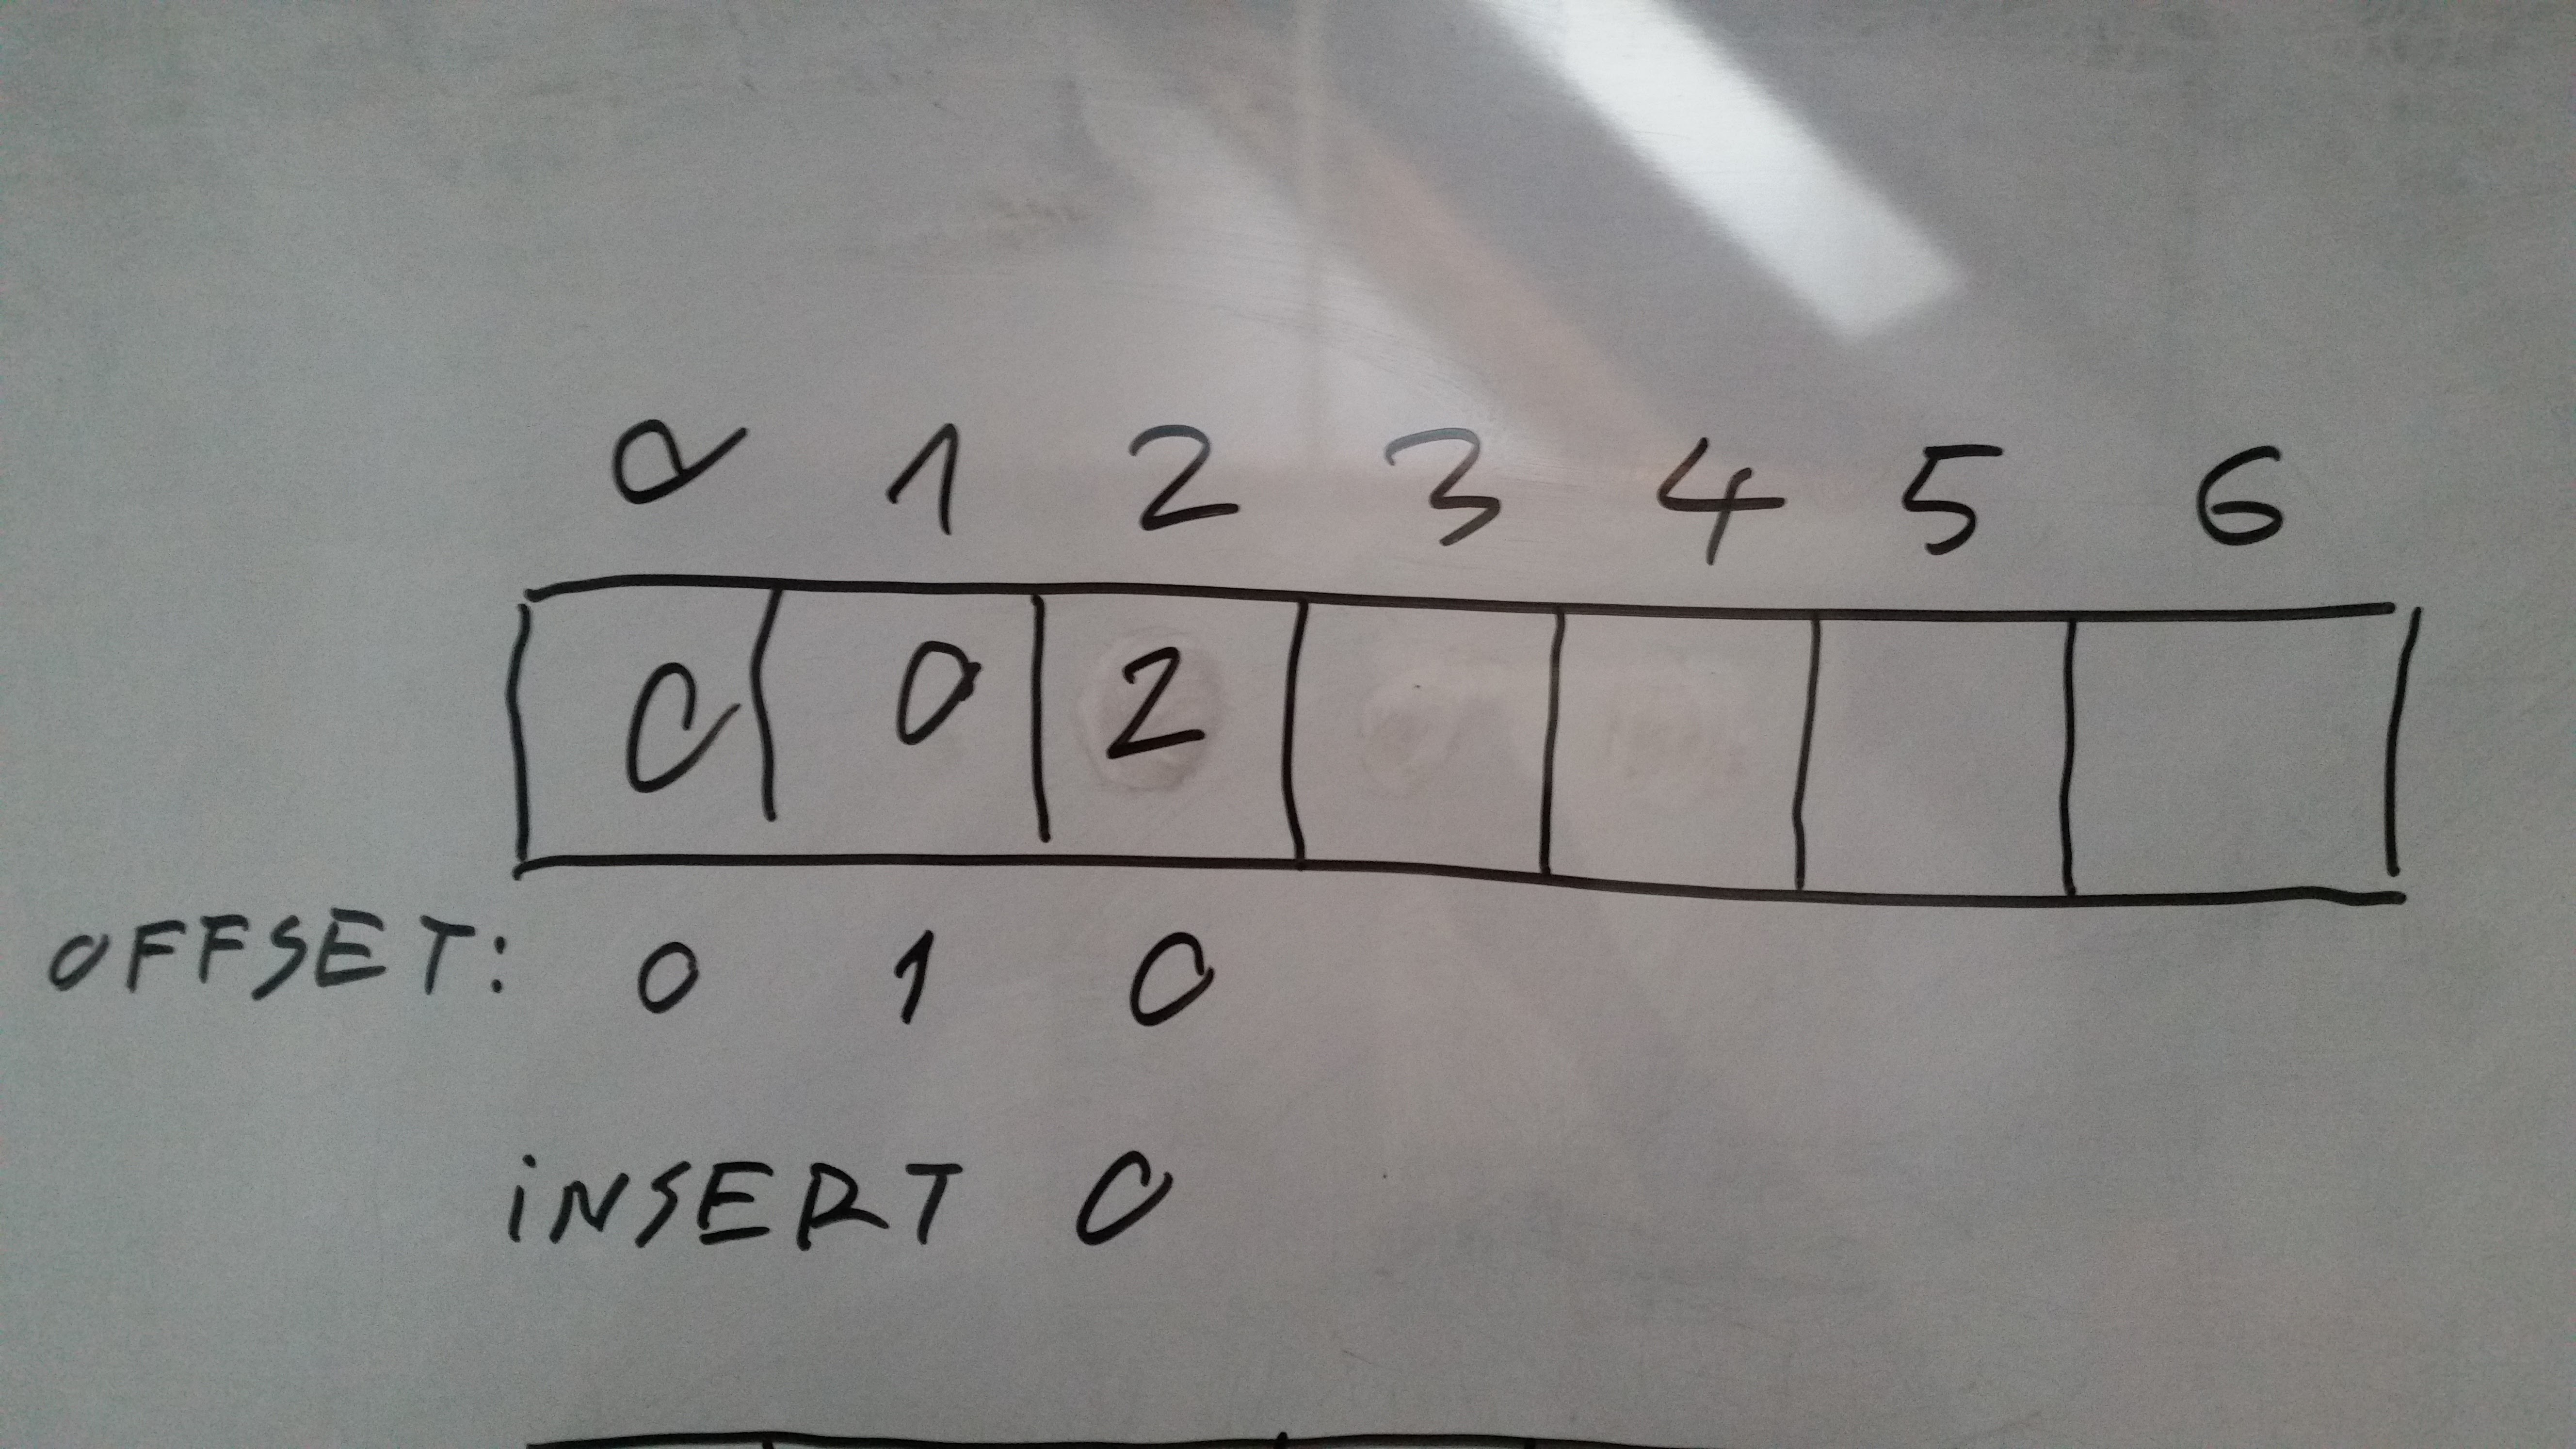 0 1 2 3 4 5 6
0 0 2
OFFSET: 0 1 0
iNSERT 0